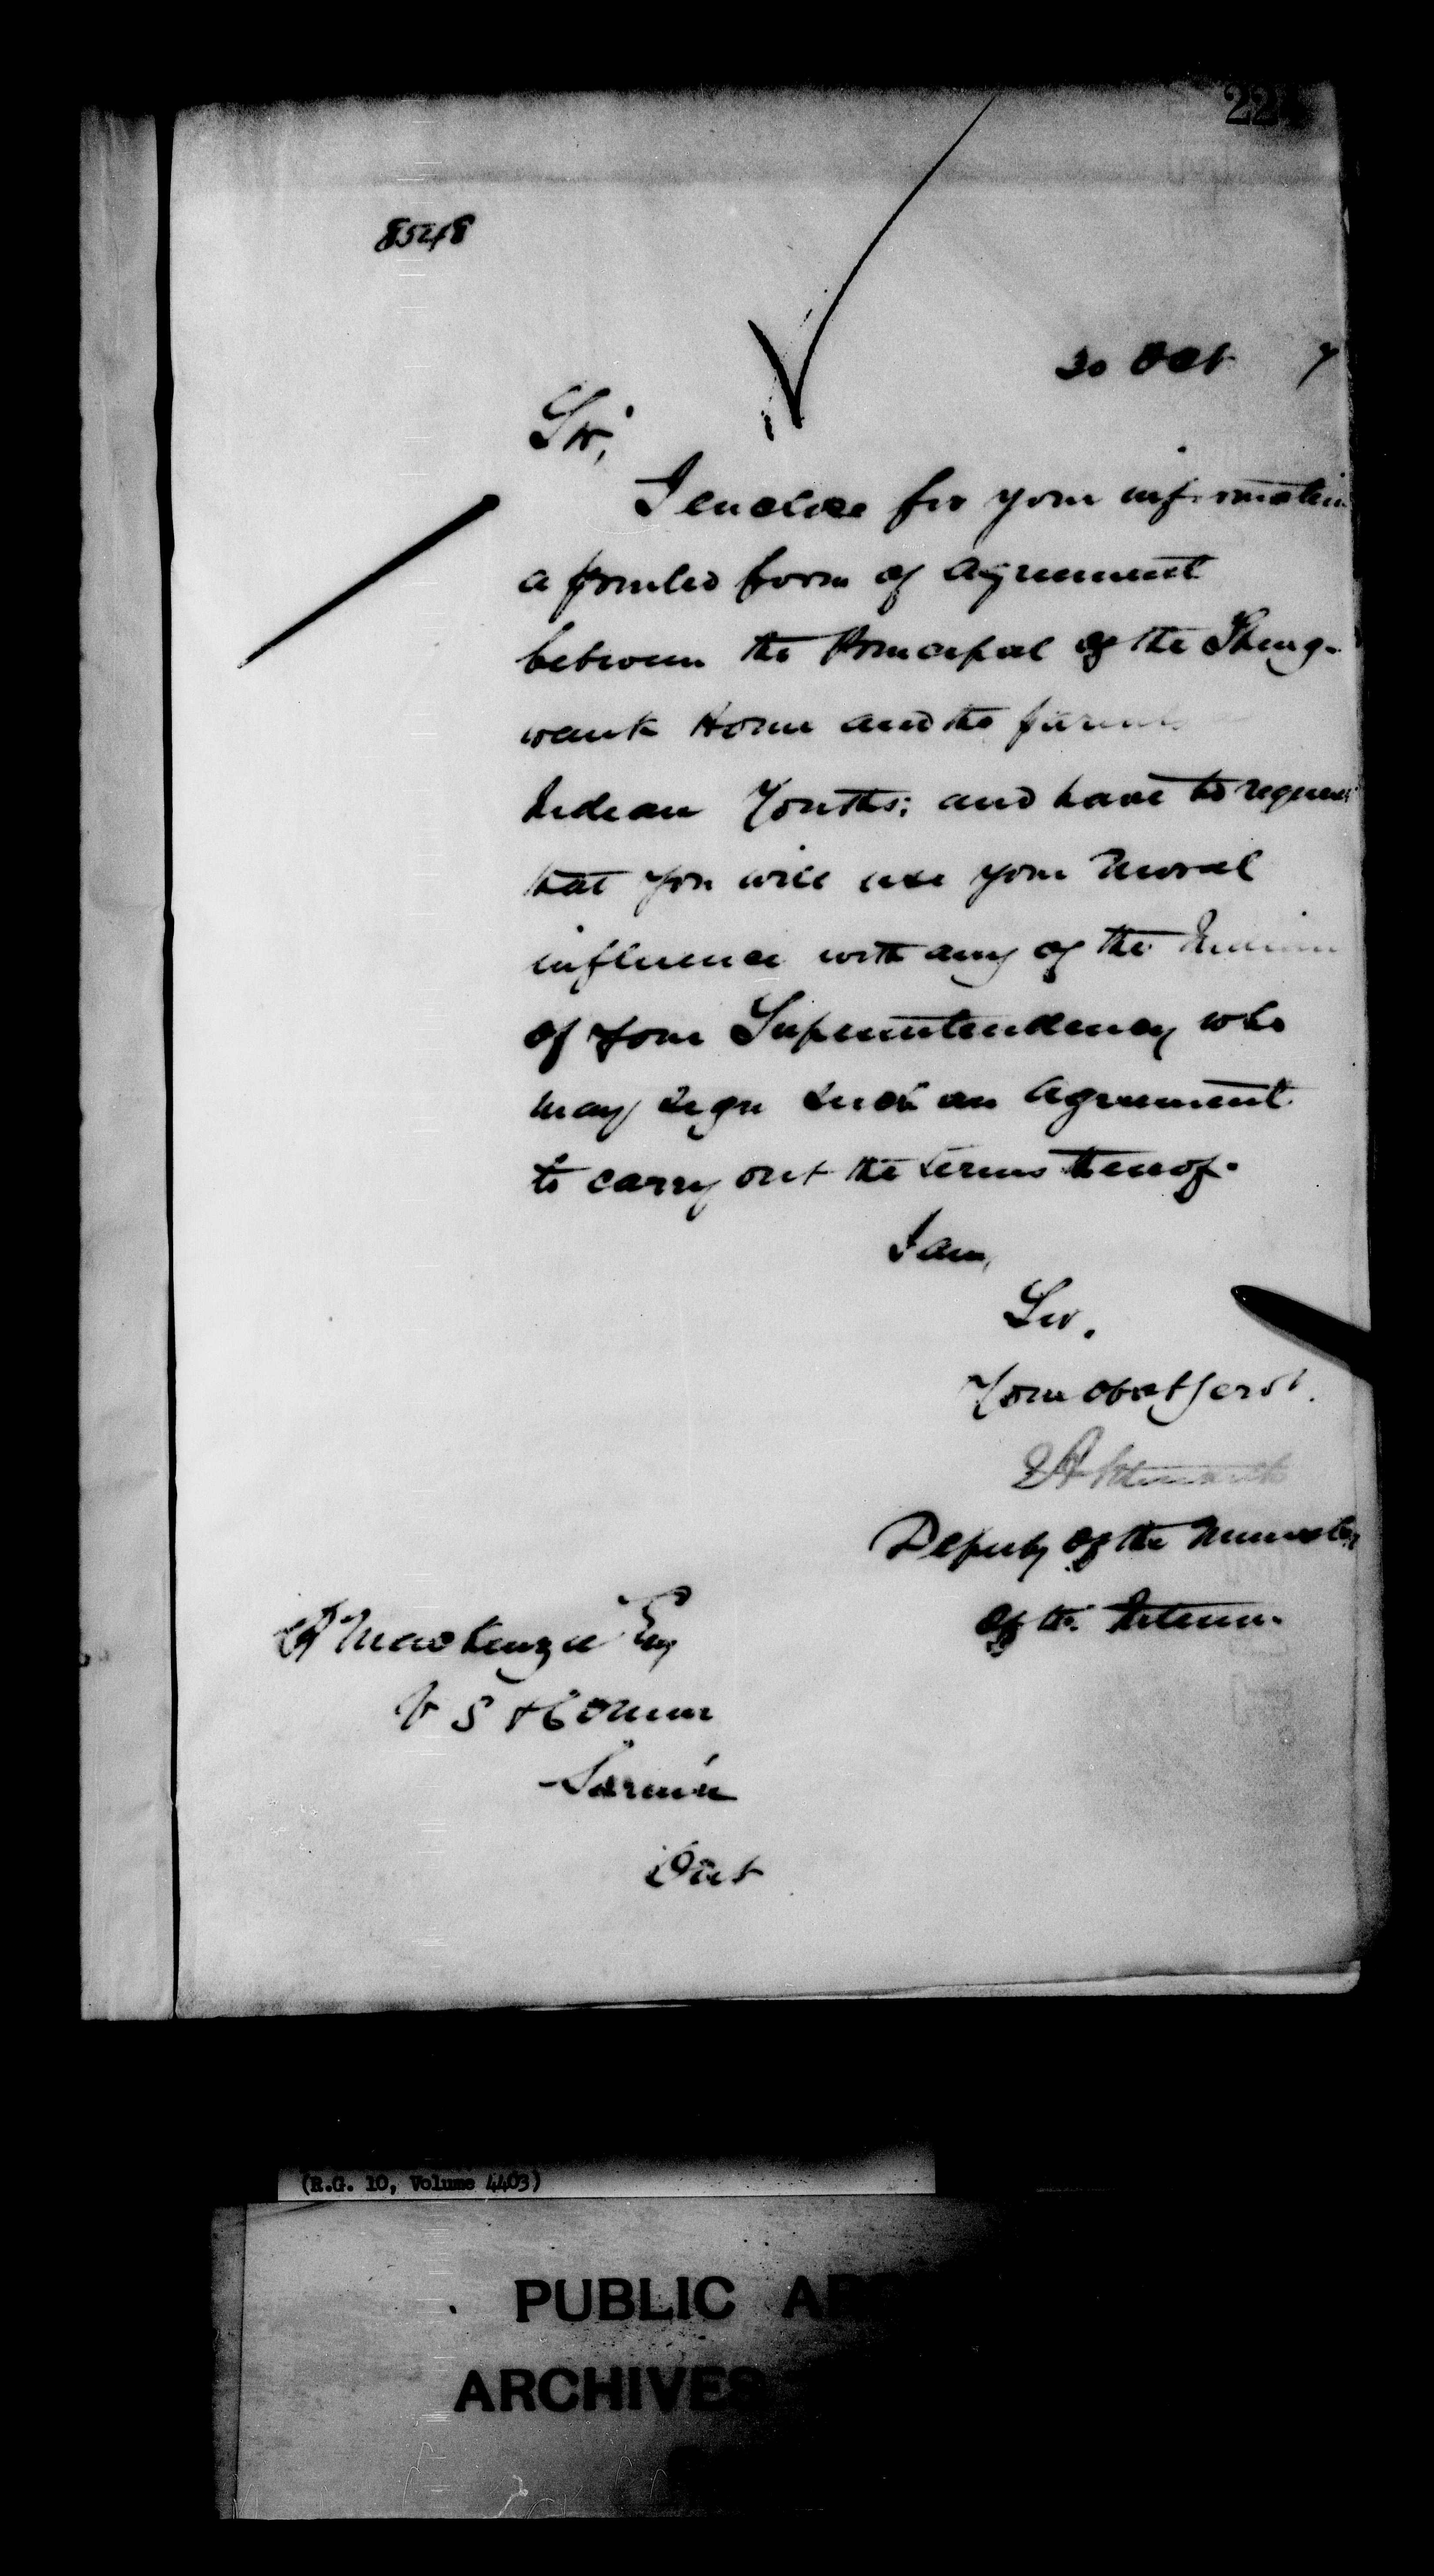 22
8548
30 Oct 7
Sir,
I enclose for your information
a printed form of agreement
between the Principal of the Shing-
wauk Home and the parents
Indian Youths; and have to request
that you will use your moral
influence with any of the Indians
of your Superintendency who
may sign such an agreement
to carry out the terms thereof.
I am,
Sir,
Your obdt Servt.
Deputy of the Minister
of the Interior.
Mackenzie Esq
V S & Commr
Sarnia
Ont
(R.G. 10, Volume 4403)
PUBLIC
ARCHIVES